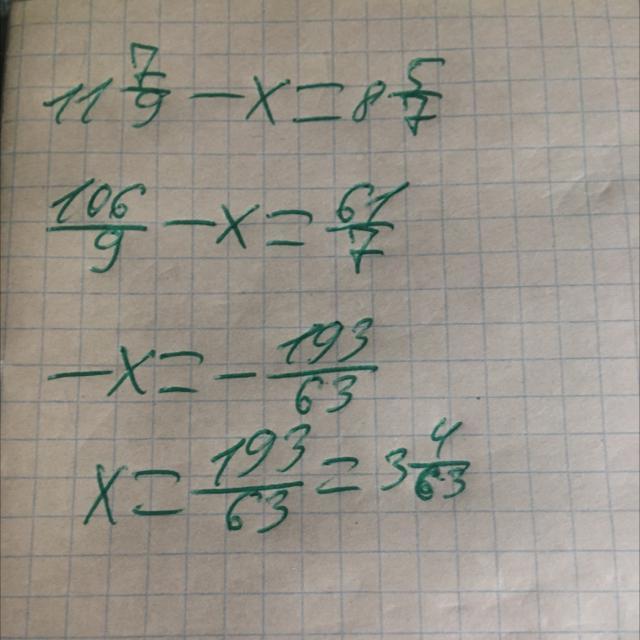 11 7/9 - x = 8 5/7
106/9 - x = 61/7
-x = - 193/63
x = 193/63 = 3 4/63